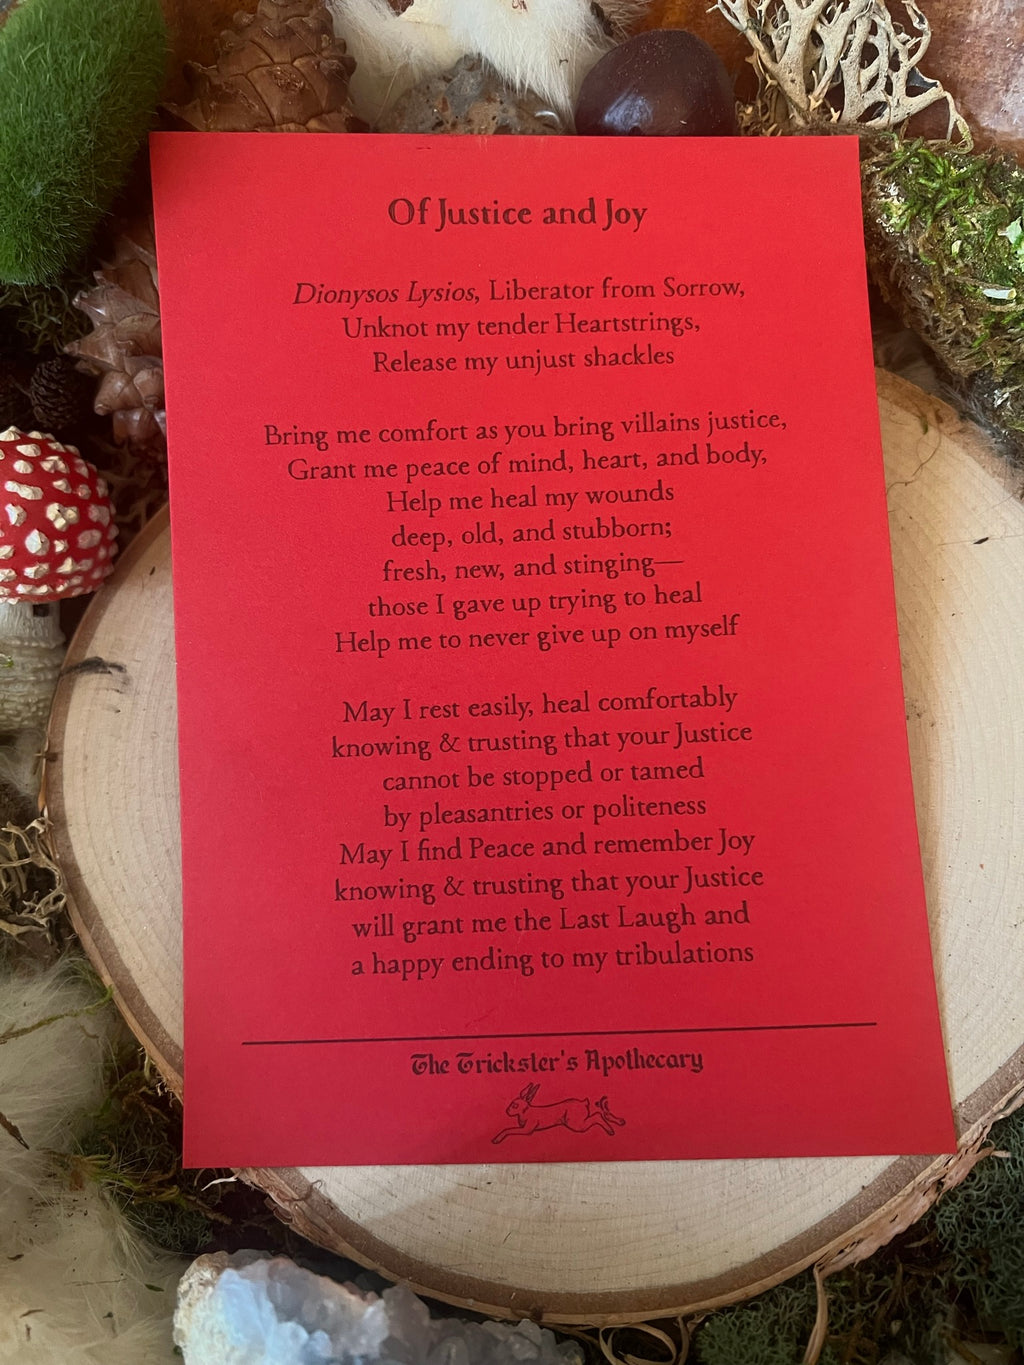 Of Justice and Joy
Dionysos Lysios, Liberator from Sorrow,
Unknot my tender Heartstrings,
Release my unjust shackles
Bring me comfort as you bring villains justice,
Grant me peace of mind, heart, and body,
Help me heal my wounds
deep, old, and stubborn;
fresh, new, and stinging—
those I gave up trying to heal
Help me to never give up on myself
May I rest easily, heal comfortably
knowing & trusting that your Justice
cannot be stopped or tamed
by pleasantries or politeness
May I find Peace and remember Joy
knowing & trusting that your Justice
will grant me the Last Laugh and
a happy ending to my tribulations
The Trickster's Apothecary